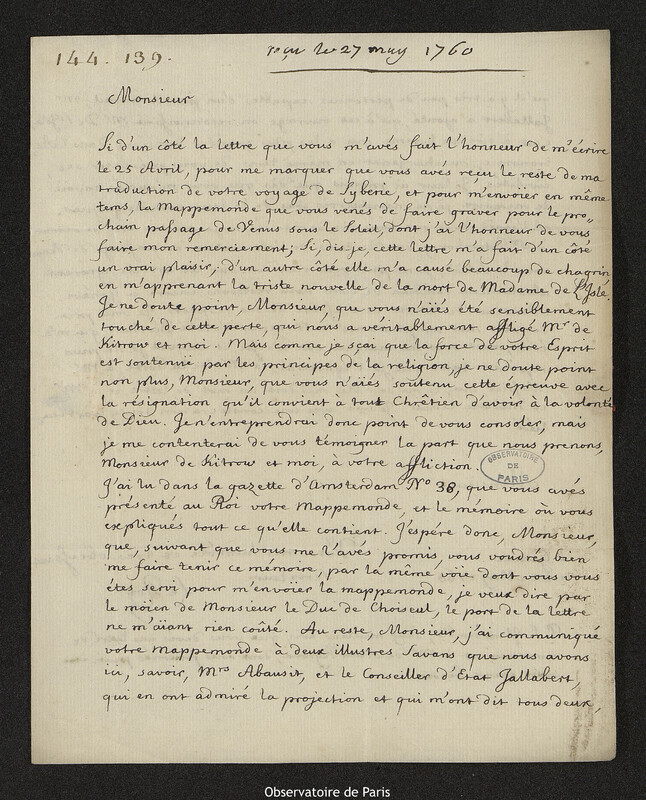 144. 139.
reçu le 27 may 1760
Monsieur
Si d'un côté la lettre que vous m'avés fait l'honneur de m'écrire
le 25 Avril, pour me marquer que vous avés reçu le reste de ma
traduction de votre voyage de Syberie, et pour m'envoïer en même
tems, la Mappemonde que vous venés de faire graver pour le pro„
chain passage de Venus sous le Soleil, dont j'ai l'honneur de vous
faire mon remerciement; Si, dis-je, cette lettre m'a fait d'un côté
un vrai plaisir, d'un autre côté elle m'a causé beaucoup de chagrin
en m'apprenant la triste nouvelle de la mort de Madame de L'Isle.
Je ne doute point, Monsieur, que vous n'aïés été sensiblement
touché de cette perte, qui nous a véritablement affligé Mr de
Kitrow et moi. Mais comme je sçai que la force de votre Esprit
est soutenuë par les principes de la religion, je ne doute point
non plus, Monsieur, que vous n'aïés soutenu cette épreuve avec
la résignation qu'il convient à tout Chrêtien d'avoir à la volonté
de Dieu. Je n'entreprendrai donc point de vous consoler, mais
je me contenterai de vous témoigner la part que nous prenons,
Monsieur de Kitrow et moi, à votre affliction.
OBSERVATOIRE
DE
PARIS
J'ai lu dans la gazette d'Amsterdam No 38, que vous avés
présenté au Roi votre Mappemonde, et le mémoire où vous
expliqués tout ce qu'elle contient. J'espére donc, Monsieur,
que, suivant que vous me l'avés promis, vous voudrés bien
me faire tenir ce mémoire, par la même vöie dont vous vous
étes servi pour m'envoïer la mappemonde, je veux dire par
le moïen de Monsieur le Duc de Choiseul, le port de la lettre
ne m'aïant rien coûté. Au reste, Monsieur, j'ai communiqué
votre Mappemonde à deux illustres Savans que nous avons
ici, savoir, Mrs Abausit, et le Conseiller d'Etat Jallabert,
qui en ont admiré la projection et qui m'ont dit tous deux,
Observatoire de Paris